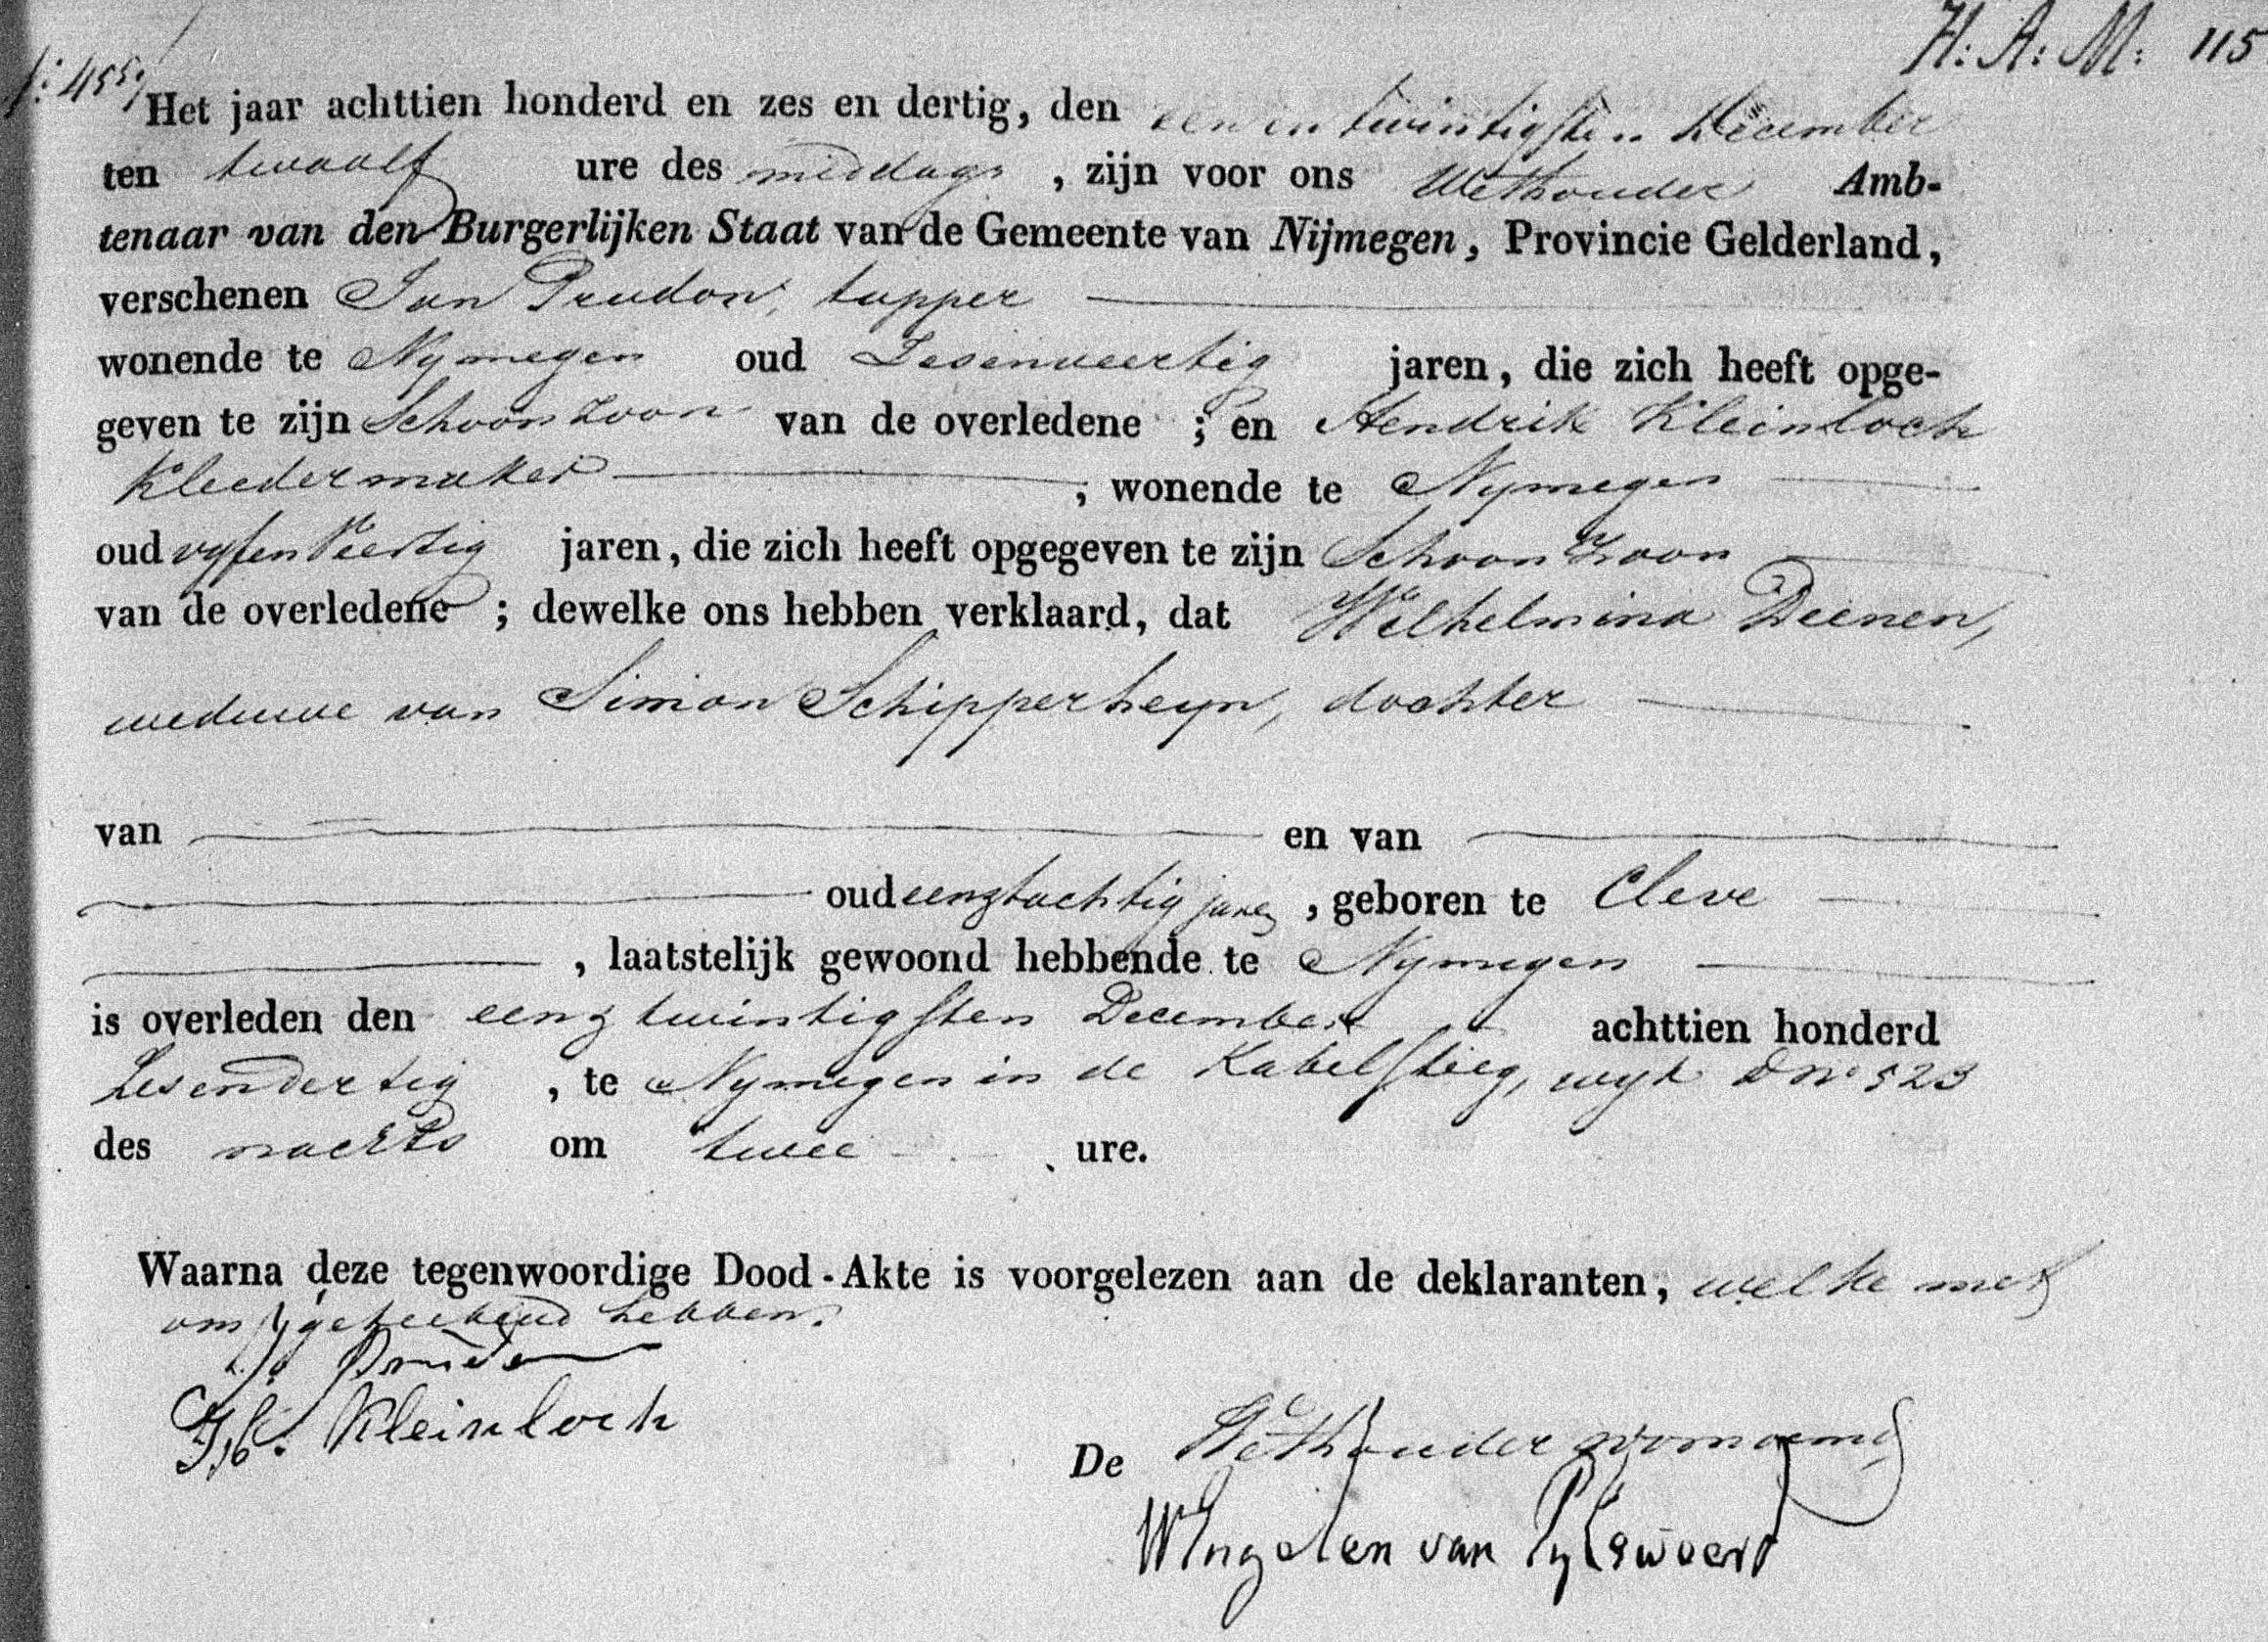 H: A: M: 115
N: 455
Het jaar achttien honderd en zes en dertig, den een en twintigsten December
ten twaalf ure des middags, zijn voor ons Wethouder Amb-
tenaar van den Burgerlijken Staat van de Gemeente van Nijmegen, Provincie Gelderland,
verschenen Jan Prudon, tapper
wonende te Nymegen oud Zesenveertig jaren, die zich heeft opge-
geven te zijn Schoonzoon van de overledene ; en Hendrik Kleinloch
Kleedermaker , wonende te Nymegen
oud vyfenveertig jaren, die zich heeft opgegeven te zijn Schoonzoon
van de overledene ; dewelke ons hebben verklaard, dat Wilhelmina Deenen,
weduwe van Simon Schipperheyn, dochter
van en van
oud eenztachtig jaren , geboren te Cleve
, laatstelijk gewoond hebbende te Nymegen
is overleden den eenztwintigsten December achttien honderd
Zesendertig , te Nymegen in de Kabelstieg, wyk D No 523
des nachts om twee ure.
Waarna deze tegenwoordige Dood-Akte is voorgelezen aan de deklaranten, welke met
ons geteekend hebben.
J. Prudon
H. Kleinloch
De Wethouder voornoemd
W Engelen van Pylsweert